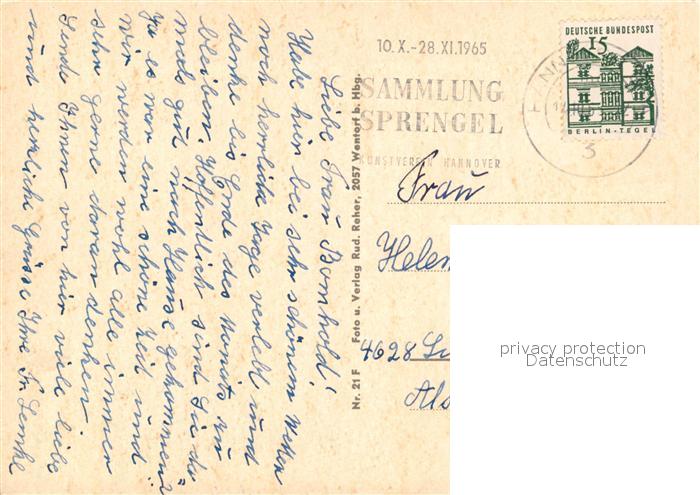 Liebe Frau Bomhold!
Habe hier bei sehr schönem Wetter
noch herrliche Tage verlebt und
denke bis Ende des Monats zu
bleiben. Hoffentlich sind Sie da
mals gut nach Hause gekommen?
Ja es war eine schöne Zeit und
wir werden wohl alle immer
sehr gerne daran denken.
Sende Ihnen von hier viele liebe
und herzlich Grüsse Ihre Fr. Lemke
Nr. 21 F Foto u. Verlag Rud. Reher, 2057 Wentorf b. Hbg.
10. X.-28. XI. 1965
SAMMLUNG
SPRENGEL
KUNSTVEREIN HANNOVER
3
DEUTSCHE BUNDESPOST
15
BERLIN-TEGEL
Frau
Helen
4628 Lü
Als
privacy protection
Datenschutz